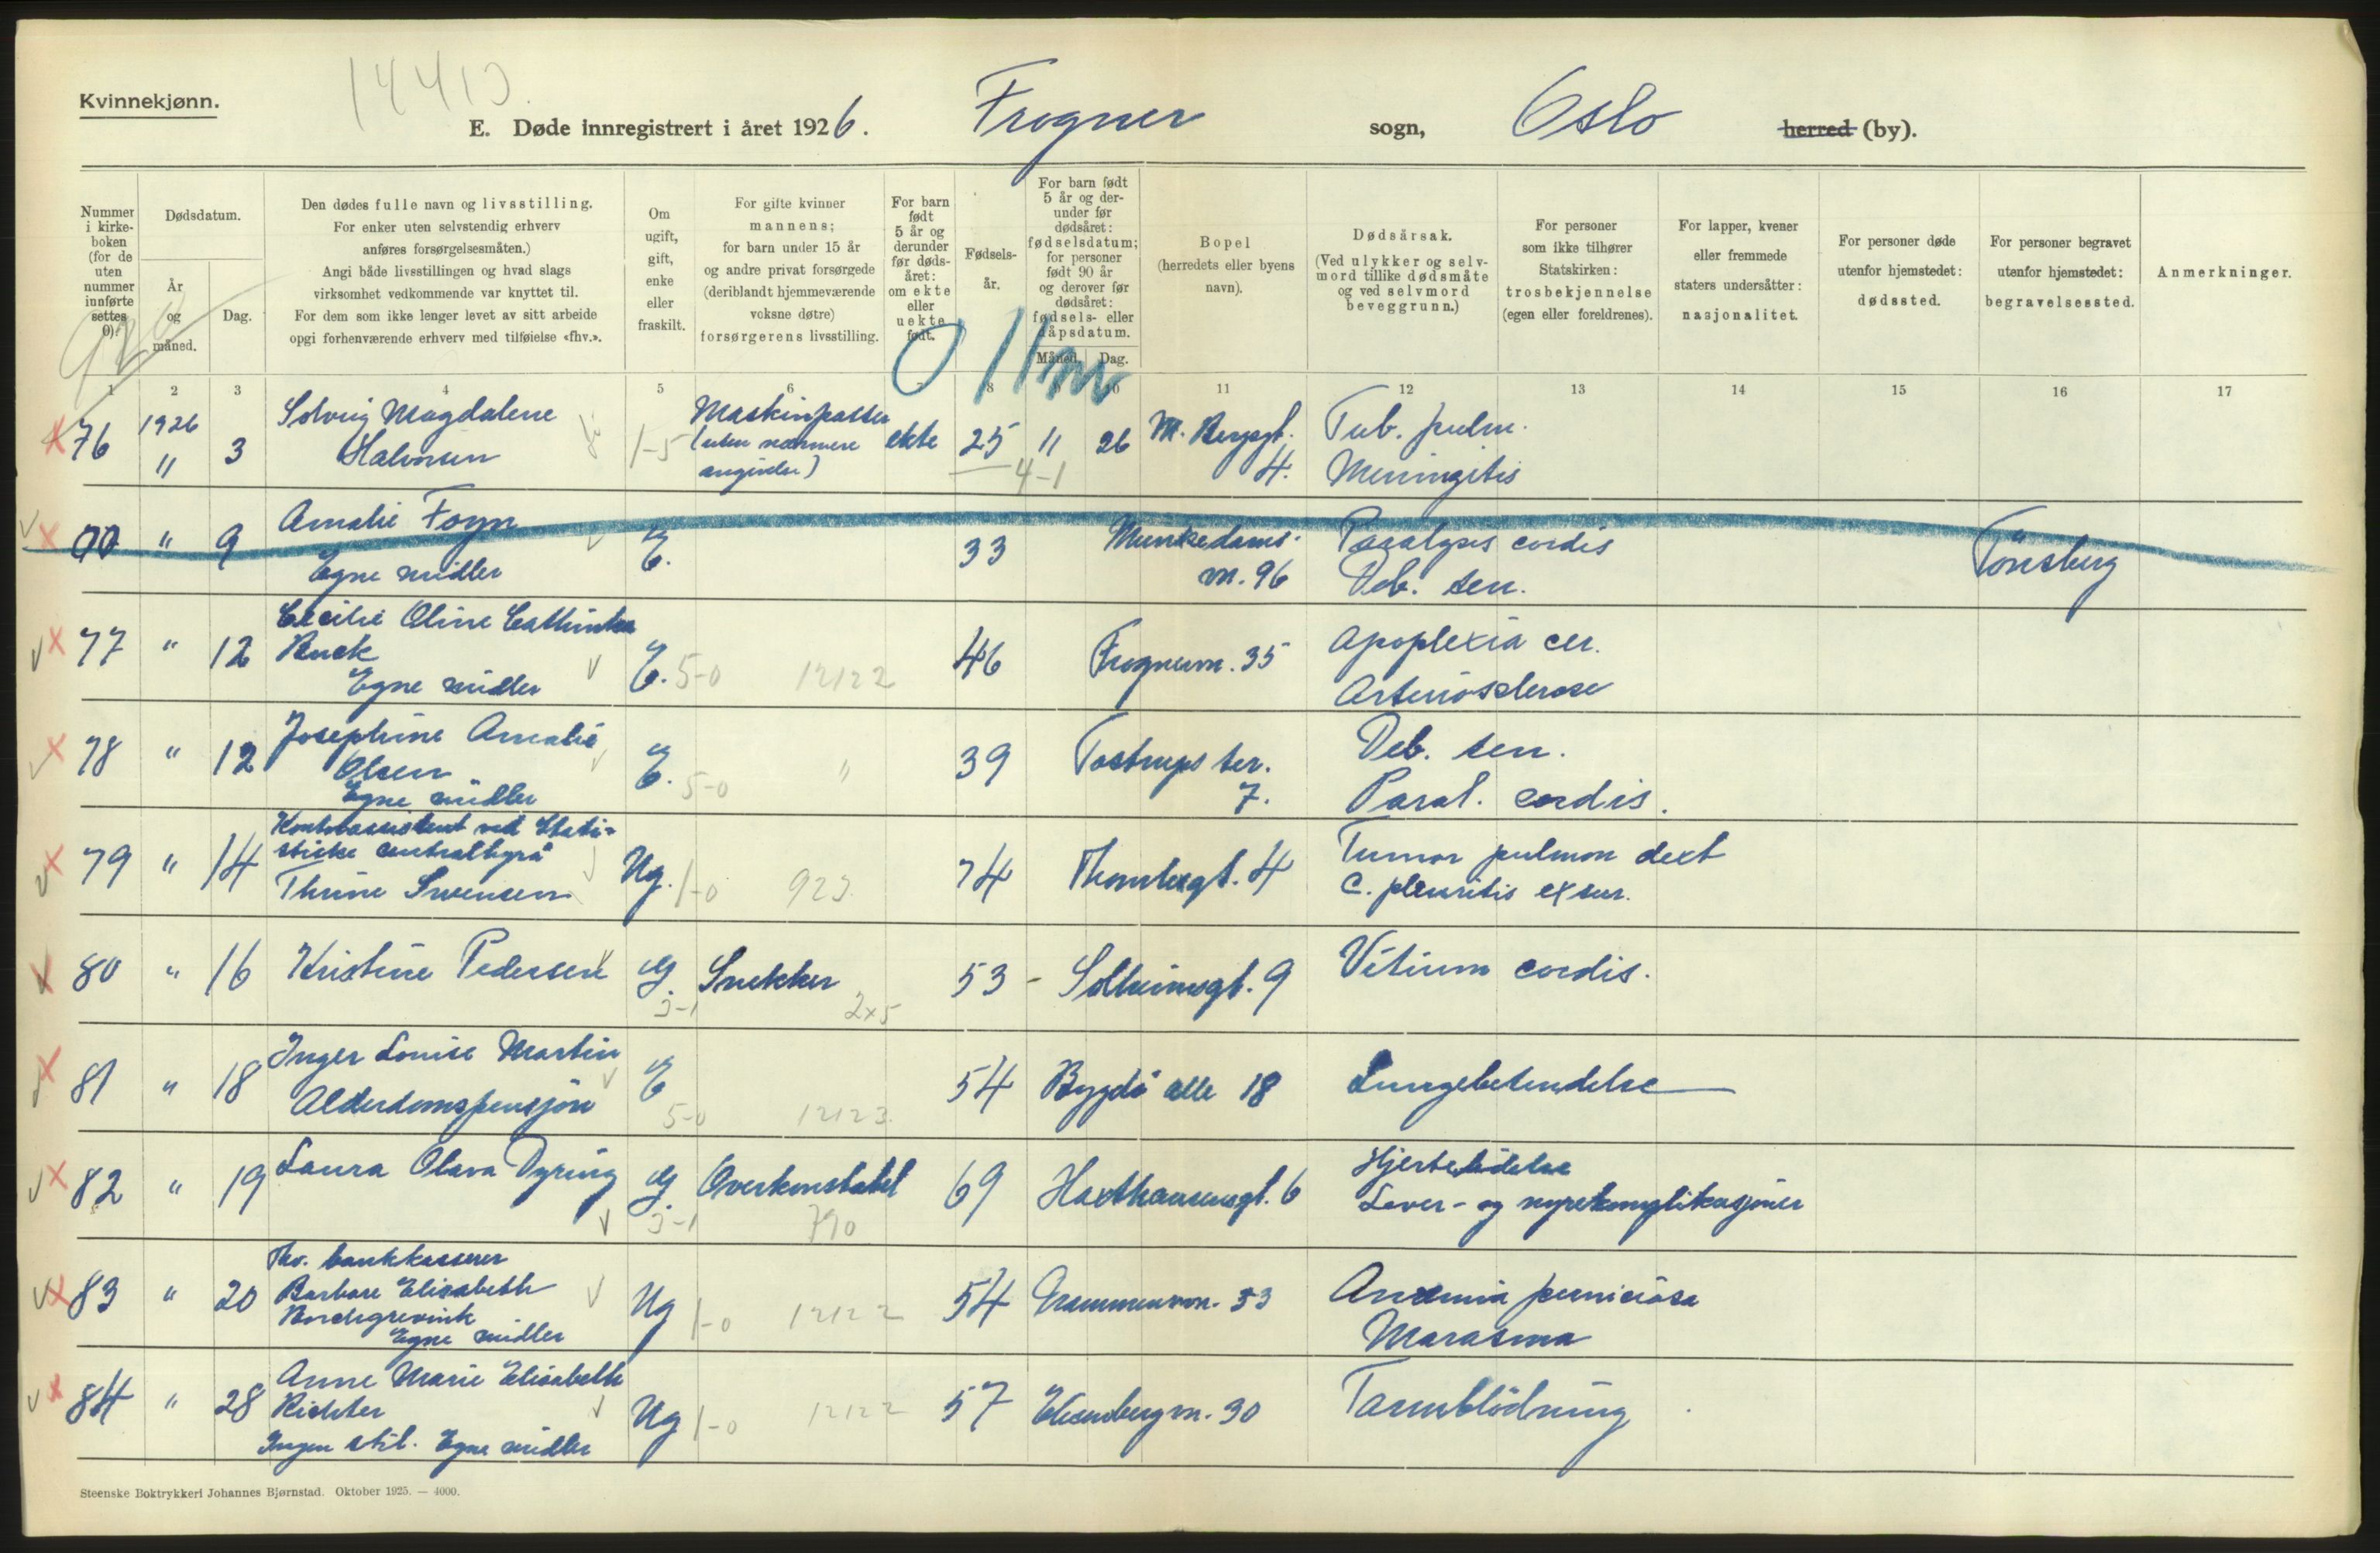 Kvinnekjønn.
14413
E. Døde innregistrert i året 1926. Frogner sogn, Oslo herred (by).
Nummer i kirkeboken (for de uten nummer innførte settes 0).
Dødsdatum.
År og måned.
Dag.
Den dødes fulle navn og livsstilling.
For enker uten selvstendig erhverv
anføres forsørgelsesmåten.)
Angi både livsstillingen og hvad slags
virksomhet vedkommende var knyttet til.
For dem som ikke lenger levet av sitt arbeide
opgi forhenværende erhverv med tilføielse «fhv.».
Om ugift, gift, enke eller fraskilt.
For gifte kvinner
mannens;
for barn under 15 år
og andre privat forsørgede
(deriblandt hjemmeværende
voksne døtre)
forsørgerens livsstilling.
For barn født 5 år og derunder før dødsåret: om ekte eller uekte født.
Fødselsår.
For barn født 5 år og derunder før dødsåret: fødselsdatum; for personer født 90 år og derover før dødsåret: fødsels- eller dåpsdatum.
Måned. Dag.
Bopel
(herredets eller byens
navn).
Dødsårsak.
(Ved ulykker og selvmord tillike dødsmåte
og ved selvmord
beveggrunn.)
For personer
som ikke tilhører
Statskirken:
trosbekjennelse
(egen eller foreldrenes).
For lapper, kvener
eller fremmede
staters undersåtter:
nasjonalitet.
For personer døde
utenfor hjemstedet:
dødssted.
For personer begravet
utenfor hjemstedet:
begravelsessted.
Anmerkninger.
1 2 3 4 5 6 8 10 11 12 13 14 15 16 17
76 1926 " 3 Solveig Magdalene
Halvorsen
1-5 Maskinpasser
(uten nærmere
angivelse)
ekte 25 11 26 4-1 M. Bergsgt.
4.
Tub. pulm.
Meningitis
00 " 9 Amalie Foyn
Egne midler
E. 33 Munkedams-
vn. 96
Paralysis cordis
Deb. sen.
Tönsberg
77 " 12 Cecilie Oline Cathinka
Buck
Egne midler
E. 5-0 12122 46 Frognervn. 35
Apoplexia cer.
Arteriosclerose
78 " 12 Josephine Amalie
Olsen
Egne midler
E. 5-0 " 39 Tostrups ter.
7.
Deb. sen.
Paral. cordis.
79 " 14 Kontorassistent ved Stati-
stiske centralbyrå
Thrine Svensen
Ug. 1-0 923 74 Thomlesgt. 4
Tumor pulmon dext
c. pleuritis exsur.
80 " 16 Kristine Pedersen g. 3-1 Snekker 2x5 53 - Solheimsgt. 9 Vitium cordis.
81 " 18 Inger Louise Martin
Alderdomspensjon
E 5-0 12123 54 Bygdö alle 18 Lungebetendelse
82 " 19 Laura Olava Dyring g. 3-1 Overkonstabel 790 69 Haxthausensgt. 6
Hjertelidelse
Lever- og nyrekomplikasjoner
83 " 20 Fhv. bankkasserer
Barbare Elisabeth
Nordgrevink
Egne midler
Ug 1-0 12122 54 Drammensvn. 53
Anæmia perniciosa
Marasma
84 " 28 Anne Marie Elisabeth
Richter
Ingen stil. Egne midler
Ug 1-0 12122 57 Elisenbergvn. 30 Tarmblödning
Steenske Boktrykkeri Johannes Bjørnstad. Oktober 1925. — 4000.